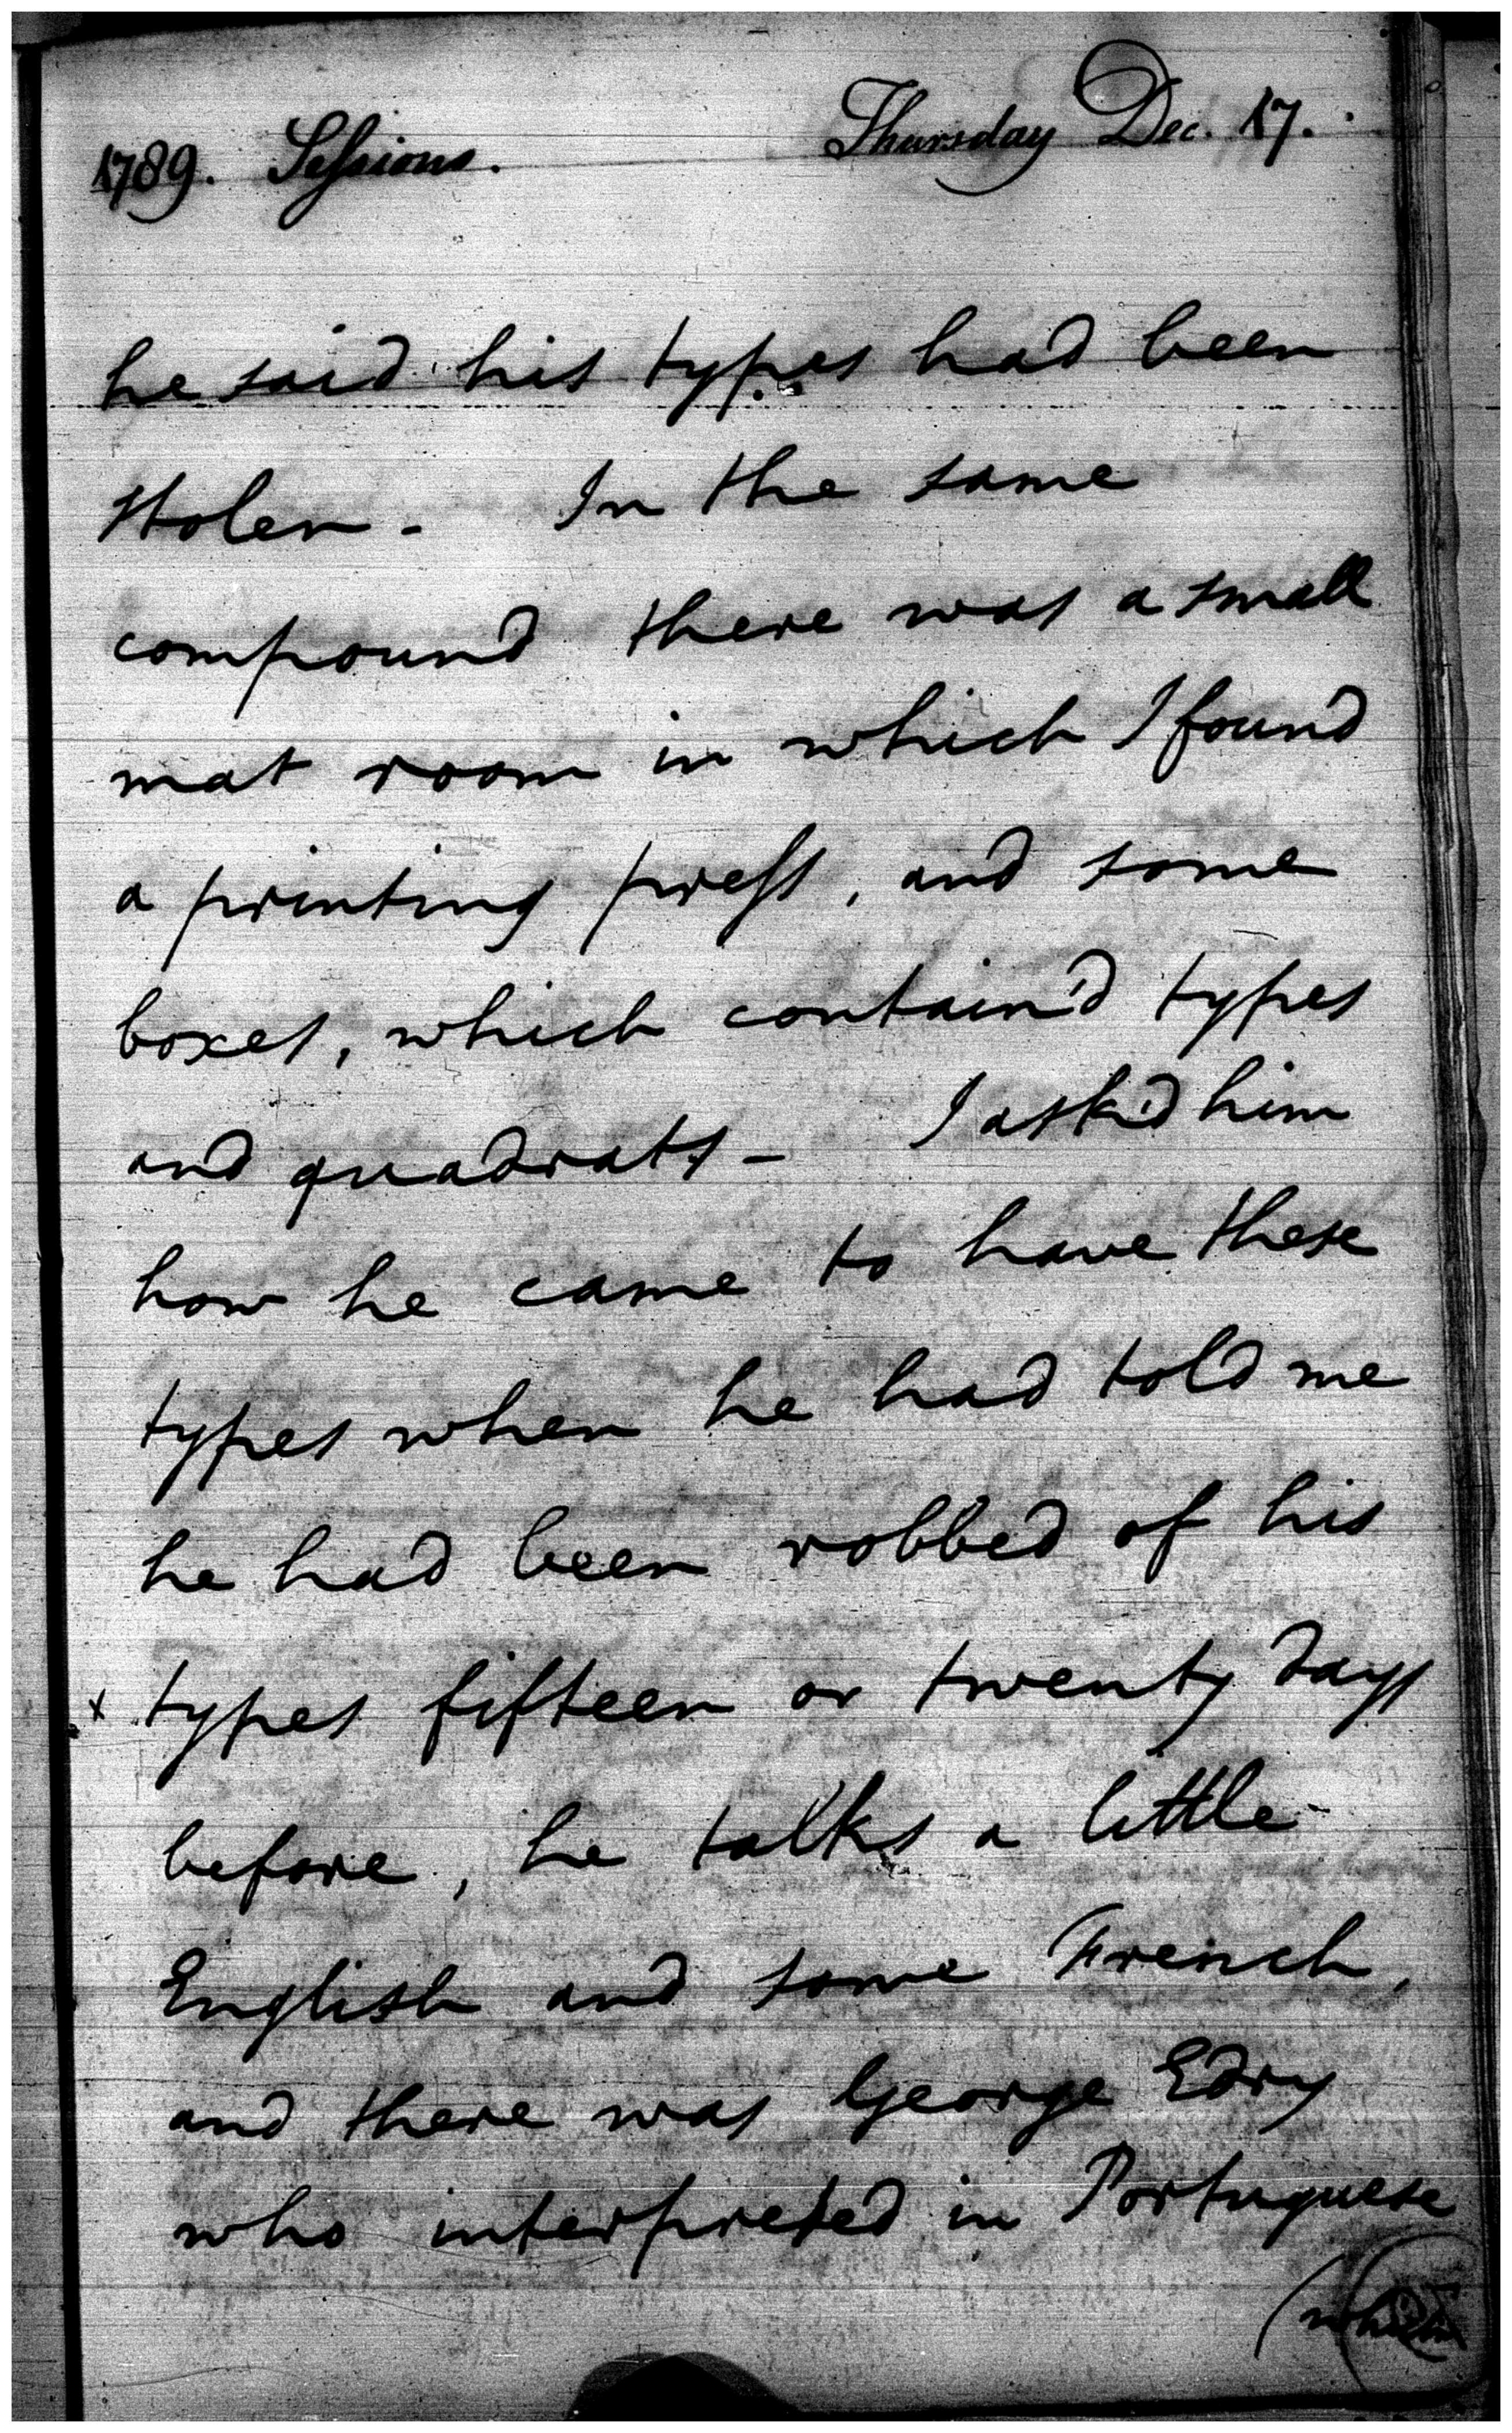 1789. Sessions. Thursday Dec. 17.
he said his types had been
stolen - In the same
compound there was a small
mat room in which I found
a printing press, and some
boxes, which contain'd types
and quadrats - I ask'd him
how he came to have these
types when he had told me
he had been robbed of his
x types fifteen or twenty days
before, he talks a little
English and some French,
and there was George Edry
who interpreted in Portuguese
(which